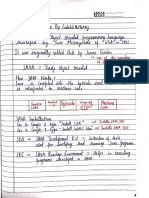 Java By Sushil Mummy
Object Oriented programming language
developed by "Sun Microsystems of "USA" - 1991
It was originally called Oak by James Gosling
one of the inventor
JAVA = Purely Object Oriented
How JAVA Works !
• Java is compiled into the bytecode and
is interpreted to machine code
Source Code
ByteCode
Machine Code
JAVA Installation
Go to Google & type "Install JDK"
Go to Google & type "Install
JDK → JAVA Development Kit = Collection of tools
used for developing and running java
programs
JRE → JAVA Runtime Environment = Helps in executing
programs developed in JAVA